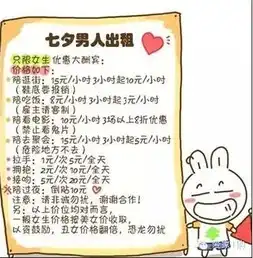 七夕男人出租
只限女生优惠大酬宾:
价格如下:
*陪逛街: 15元/小时 3小时起10元/小时
(鞋底要报销)
*陪吃饭: 8元/小时 3小时起5元/小时
(雇主请客制)
*陪看电影: 10元/小时 3场以上8折优惠
(禁止看鬼片)
*陪去聚会: 15元/小时 3小时起5元/小时
(危险地方不去)
*拉手: 1元/次 5元/全天
*拥抱: 2元/次 10元/全天
*接吻: 5元/次 20元/全天
*陪过夜: 倒贴10元
注意: 请非诚勿扰, 谢谢合作!
另: 以上价位均对而言,
一般女生价格按美女价收取,
以资鼓励, 丑女价格翻倍, 恐龙勿扰